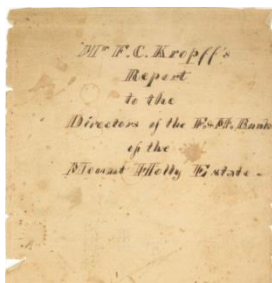 Mr F. C. Kropff's
Report
to the
Directors of the F & M. Bank
of the
Mount Holly Estate.